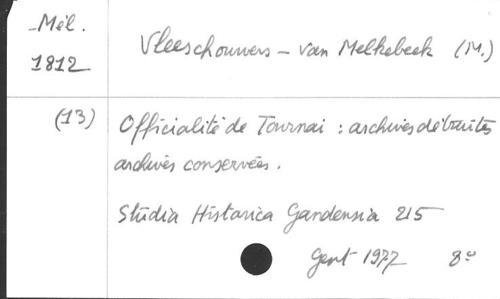 Mél.
1812
Vleeschouwers - Van Melkebeek (M.)
(13)
Officialité de Tournai : archives détruites
archives conservées.
Studia Historica Gandensia 215
Gent 1977 8º